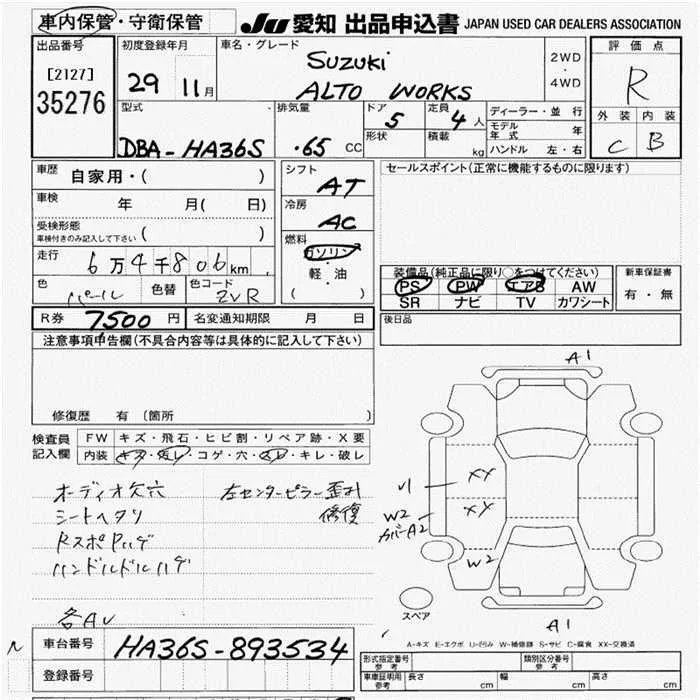 車内保管・守衛保管 JU 愛知 出品申込書 JAPAN USED CAR DEALERS ASSOCIATION
出品番号 初度登録年月 車名・グレード 2WD・4WD 評価点
[2127] 29 11月 SUZUKI R
35276 ALTO WORKS
型式 排気量 ドア 定員 ディーラー・並行 外装 内装
DBA-HA36S .65 CC 5 4人 モデル年式 年 C B
形状 積載 kg ハンドル 左・右
車歴 自家用・( ) シフト AT セールスポイント(正常に機能するものに限ります)
車検 年 月( 日) 冷房 AC
受検形態 車検付きのみ記入して下さい ( )
燃料 ガソリン・軽・油 ( )
走行 6万4千806km
色 パール 色替 色コード ZVR
装備品(純正品に限り○をつけてください) 新車保証書
PS PW エアB AW 有・無
SR ナビ TV カワシート
R券 7500円 名変通知期限 月 日 後日品
注意事項申告欄(不具合内容等は具体的に記入して下さい)
修復歴 有 (箇所
検査員記入欄 FW キズ・飛石・ヒビ割・リペア跡・X要
内装 キズ・汚レ・コゲ・穴・スレ・キレ・破レ
オーディオ欠穴 左センターピラー歪ミ
シートヘタリ 修復
RスポPハゲ
ハンドルドルハゲ
各AU
A1
XX
XY
W2
W2
カバーA2
スペア
A1
A-キズ E-エクボ U-凹み W-補修跡 S-サビ C-腐食 XX-交換済
車台番号 HA36S-893534
登録番号
形式指定番号 参考 類別区分番号 参考
車庫証明用 参考 長さ cm 幅 cm 高さ cm